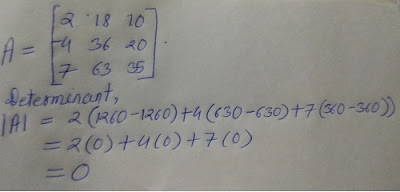 A = [2 18 10
-4 36 20
7 63 35].
Determinant,
|A| = 2(1260-1260)+4(630-630)+7(360-360))
= 2(0)+4(0)+7(0)
= 0